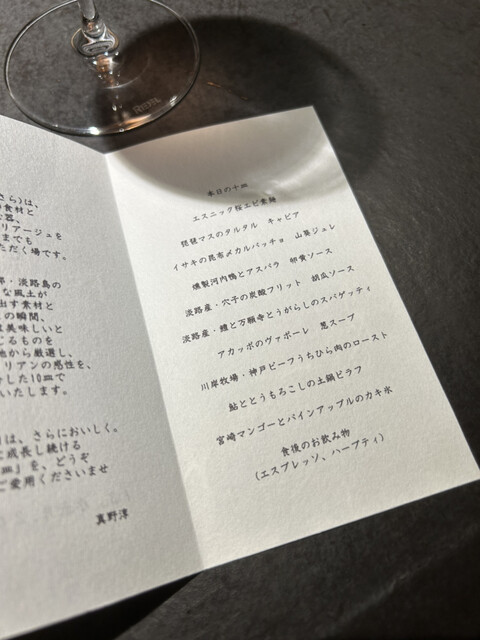 RIEDL
さら)は、
食材と
器、
リアージュを
までも
ただく場です。
郎・淡路島の
な風土が
出す素材と
の瞬間、
は美味しいと
じるものを
地から厳選し、
リアンの感性を、
した10皿で
いたします。
は、さらにおいしく。
に成長し続ける
皿」を、どうぞ
ご愛用くださいませ
真野淳
本日の十皿
エスニック桜エビ素麺
琵琶マスのタルタル キャビア
イサキの昆布〆カルパッチョ 山葵ジュレ
燻製河内鴨とアスパラ 卵黄ソース
淡路産・穴子の炭酸フリット 胡瓜ソース
淡路産・鱧と万願寺とうがらしのスパゲッティ
アカッポのヴァポーレ 葱スープ
川岸牧場・神戸ビーフうちひら肉のロースト
鮎ととうもろこしの土鍋ピラフ
宮崎マンゴーとパインアップルのカキ氷
食後のお飲み物
(エスプレッソ、ハーブティ)